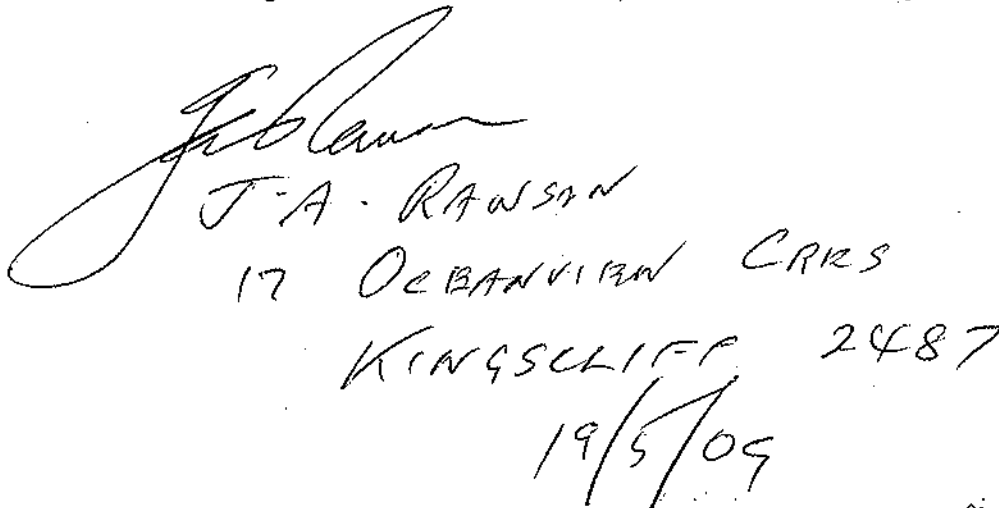 J.A. RAWSON
17 OCEANVIEW CRES
KINGSCLIFF 2487
19/5/09